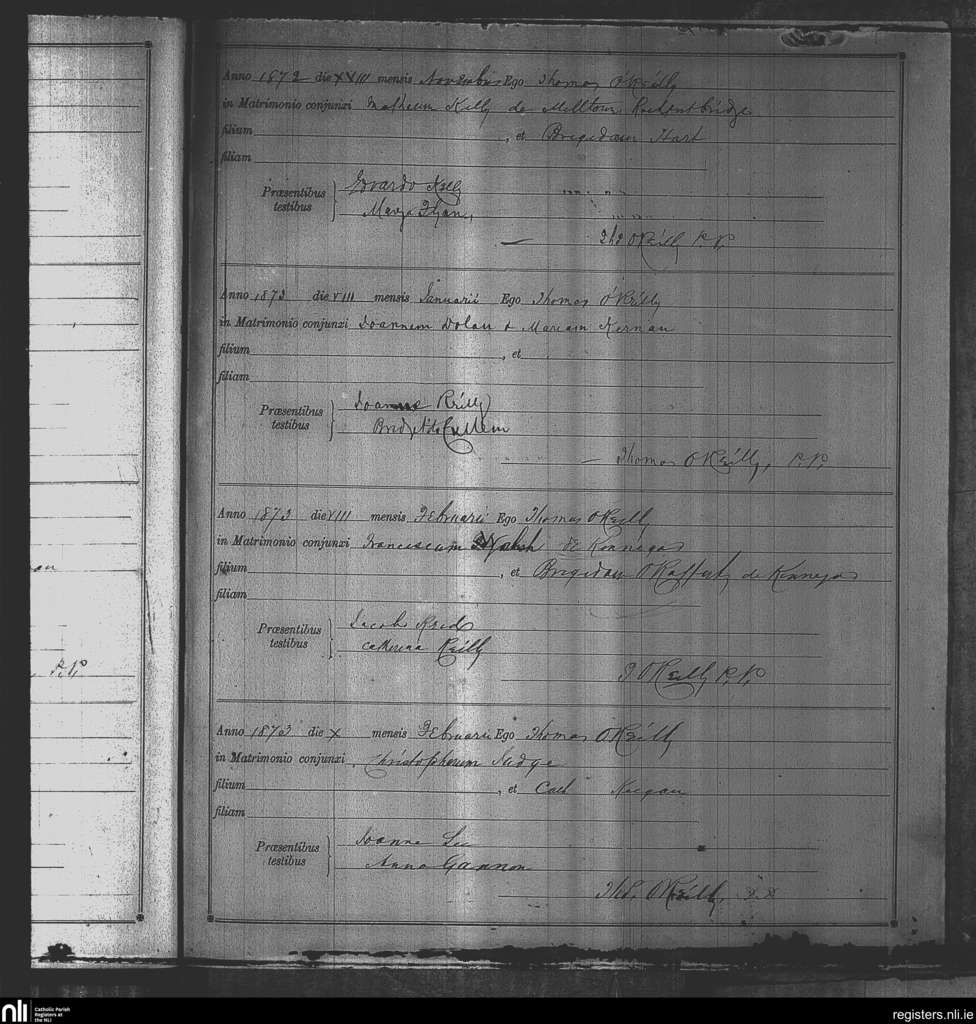 Anno 1872 die XVIII mensis Novembris Ego Thomas O'Reilly
in Matrimonio conjunxi Matheum Kelly de Milltown
filium , et Brigidam Hart
filiam
Præsentibus testibus
Edvardo Kelly
Marya
Ths O'Reilly P.P.
Anno 1873 die VIII mensis Januarii Ego Thomas O'Reilly
in Matrimonio conjunxi Joannem Dolan & Mariam Kernan
filium , et
filiam
Præsentibus testibus
Joanne Reilly
Cullem
Thomas O'Reilly, P.P.
Anno 1873 die VIII mensis Februarii Ego Thomas O'Reilly
in Matrimonio conjunxi Franciscum Walsh de
filium , et Brigidam de
filiam
Præsentibus testibus
Jacobo
Catherina Reilly
T O'Reilly P.P.
P.P.
Anno 1873 die X mensis Februarii Ego Thomas O'Reilly
in Matrimonio conjunxi Christopherum
filium , et Cath Keegan
filiam
Præsentibus testibus
Joanne Lee
Anna Gannon
Thos O'Reilly, P.P.
nli
Catholic Parish
Registers at
the NLI
registers.nli.ie